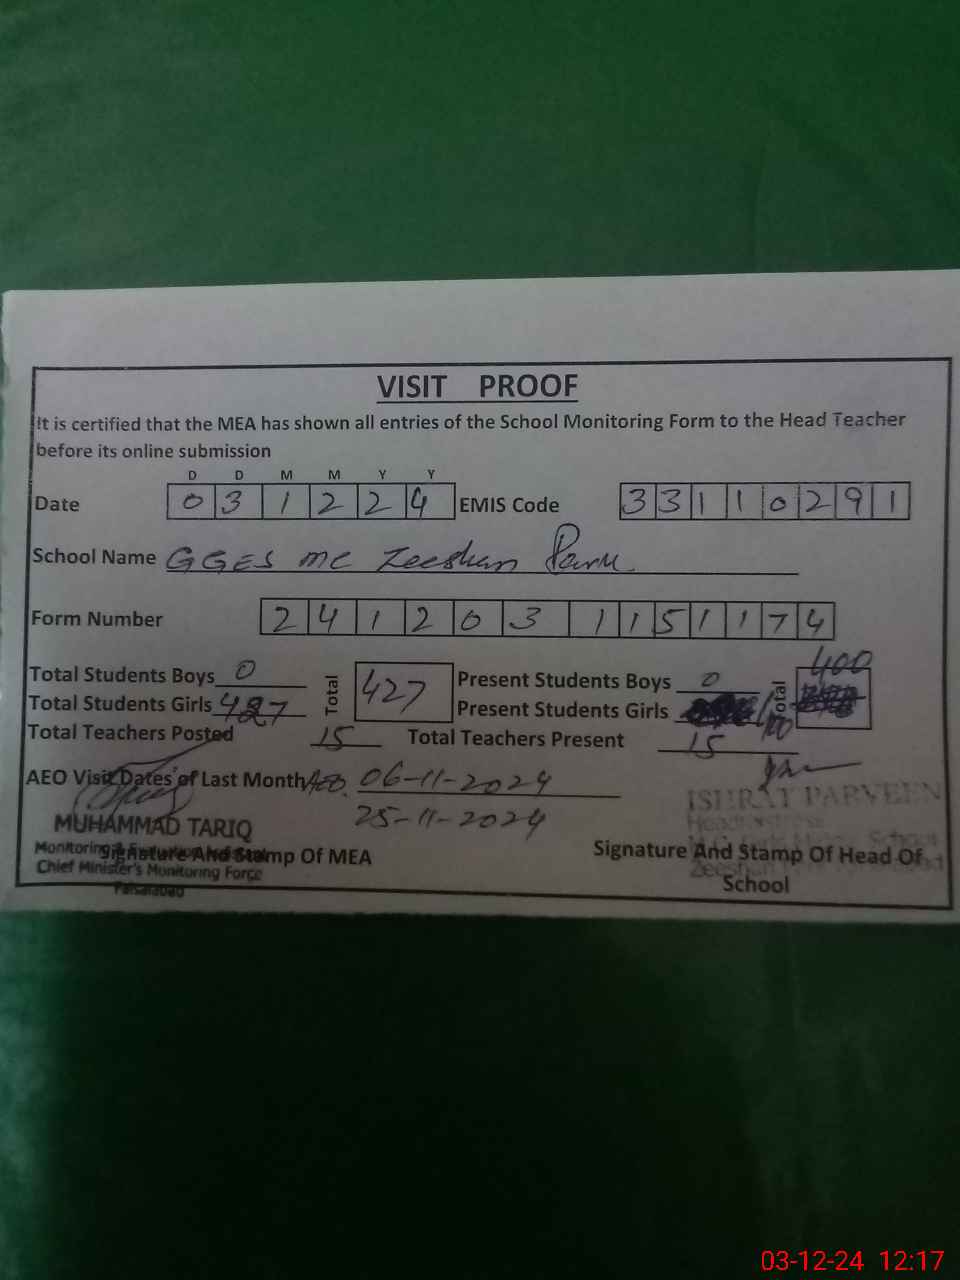 VISIT PROOF
It is certified that the MEA has shown all entries of the School Monitoring Form to the Head Teacher
before its online submission
D D M M Y Y
Date 0 3 1 2 2 4 EMIS Code 3 3 1 1 0 2 9 1
School Name GGES MC Zeeshan Park
Form Number 2 4 1 2 0 3 1 1 5 1 1 7 4
Total Students Boys 0 Total 427 Present Students Boys 0 Total 400
Total Students Girls 427 Present Students Girls
Total Teachers Posted 15 Total Teachers Present 15
AEO Visit Dates of Last Month AEO. 06-11-2024
25-11-2024
ISHRAT PARVEEN
MUHAMMAD TARIQ
Signature And Stamp Of MEA
Chief Minister's Monitoring Force
Faisalabad
Signature And Stamp Of Head Of
School
03-12-24 12:17